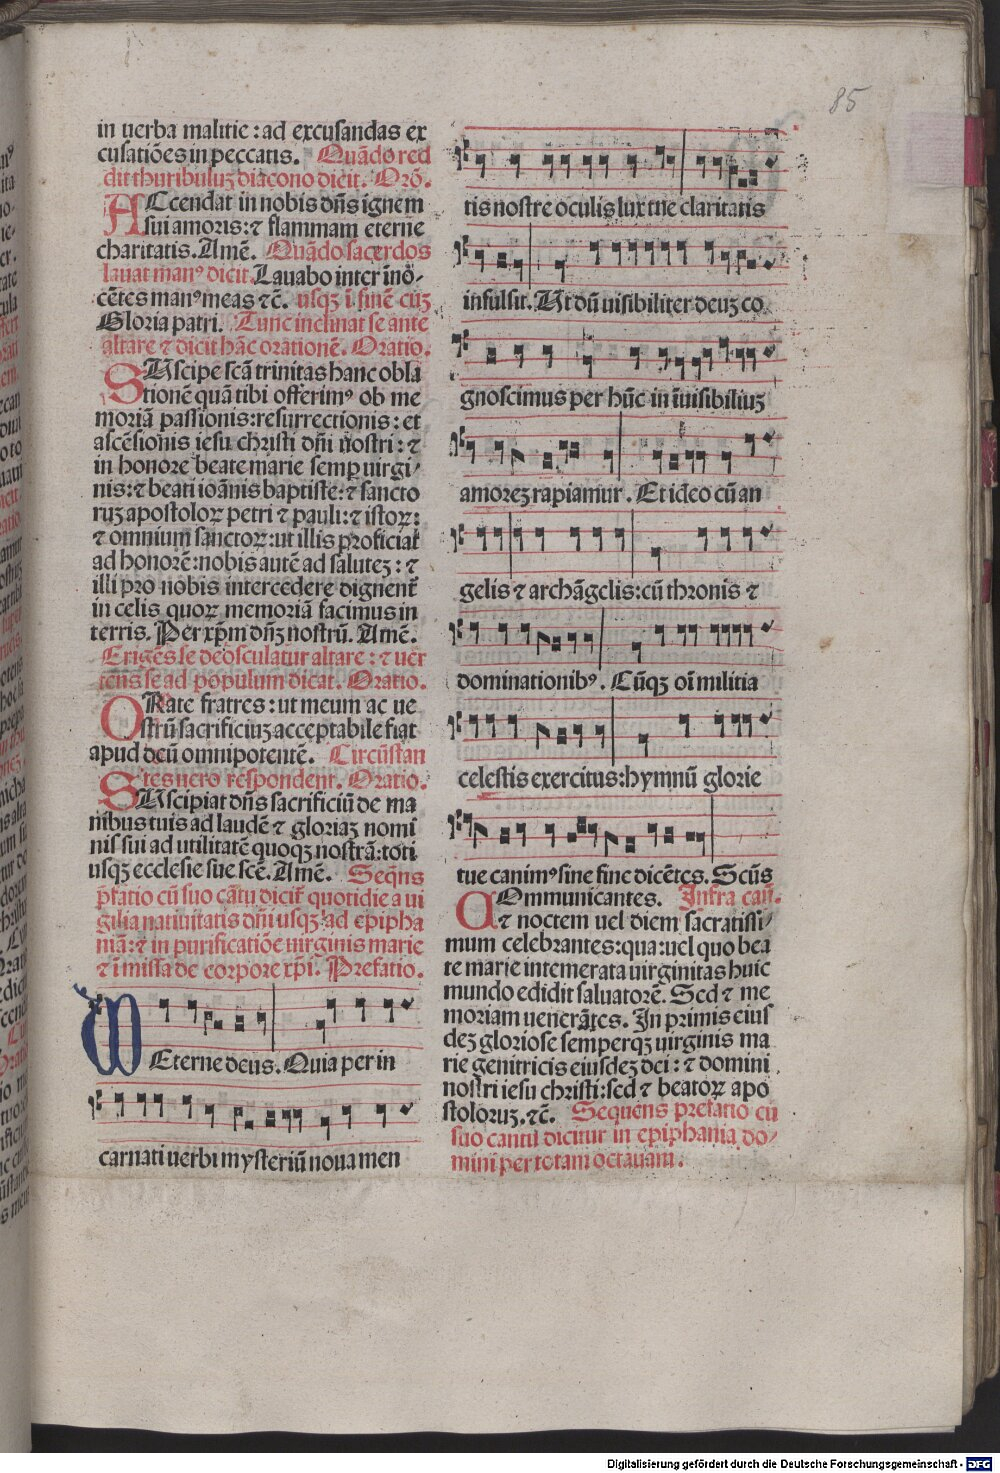 85
in uerba malitie : ad excusandas ex
cusatiões in peccatis. Quãdo red
dit thuribuluʒ diacono dicit. Orõ.
ACcendat in nobis dñs ignem
sui amoris: ⁊ flammam eterne
charitatis. Amẽ. Quãdo sacerdos
lauat manꝰ dicit. Lauabo inter ĩnõ-
cẽtes manꝰ meas ⁊c̃. usqʒ ĩ finẽ cuʒ
Gloria patri. Tunc inclinat se ante
altare ⁊ dicit hãc orationẽ. Oratio.
SUscipe scã trinitas hanc obla
tionẽ quã tibi offerimꝰ ob me
moriã passionis: resurrectionis: et
ascẽsionis iesu christi dñi nostri: ⁊
in honore beate marie semꝑ uirgi/
nis: ⁊ beati ioãnis baptiste: ⁊ sancto
ruʒ apostoloꝝ petri ⁊ pauli: ⁊ istoꝝ:
⁊ omnium sanctoꝝ: ut illis proficiat
ad honorẽ: nobis autẽ ad salutẽʒ: ⁊
illi pro nobis intercedere dignent̃
in celis quoꝝ memoriã facimus in
terris. Per xp̃m dñʒ nostrũ. Amẽ.
Erigẽs se deosculatur altare: ⁊ uer
tens se ad populum dicat. Oratio.
ORate fratres: ut meum ac ue
strũ sacrificiuʒ acceptabile fiat
apud deũ omnipotentẽ. Circũstan
tes uero respondent. Oratio.
SUscipiat dñs sacrificiũ de ma
nibus tuis ad laudẽ ⁊ gloriaʒ nomi
nis sui ad utilitatẽ quoqʒ nostrã: toti
usqʒ ecclesie sue scẽ. Amẽ. Seqñs
p̃fatio cũ suo cãtu dicit̃ quotidie a ui
gilia natiuitatis dñi usqʒ ad epipha
niã: ⁊ in purificatiõe uirginis marie
⁊ ĩ missa de corpore xp̃i. Prefatio.
Eterne deus. Quia per in
carnati uerbi mysteriũ noua men
tis nostre oculis lux tue claritatis
infulsit. Ut dũ uisibiliter deuʒ co
gnoscimus per hũc in ĩuisibiliuʒ
amoreʒ rapiamur. Et ideo cũ an
gelis ⁊ archãgelis: cũ thronis ⁊
dominationibꝰ. Cũqʒ oĩ militia
celestis exercitus: hymnũ glorie
tue canimꝰ sine fine dicẽtes. Scũs
COmmunicantes. Infra cañ.
⁊ noctem uel diem sacratissi/
mum celebrantes: qua: uel quo bea
te marie intemerata uirginitas huic
mundo edidit saluatorẽ. Sed ⁊ me
moriam uenerãtes. In primis eius
deʒ gloriose semperqʒ uirginis ma
rie genitricis eiusdeʒ dei: ⁊ domini
nostri iesu christi: sed ⁊ beatoꝝ apo
stoloruʒ. ⁊c̃. Sequens prefatio cũ
suo cantu dicitur in epiphania do/
mini per totam octauam.
Digitalisierung gefördert durch die Deutsche Forschungsgemeinschaft - DFG